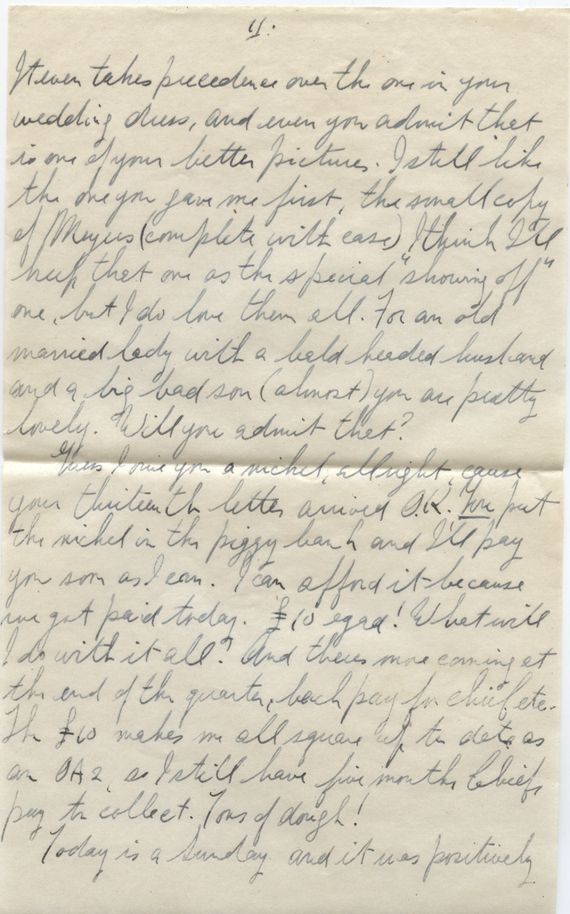 4.
It even takes precedence over the one in your
wedding dress, and even you admit that
is one of your better pictures. I still like
the one you gave me first, the small copy
of Meyers (complete with case) I think I'll
keep that one as the special "showing off"
one, but I do love them all. For an old
married lady with a bald headed husband
and a big bad son (almost) you are pretty
lovely. Will you admit that?
Guess I owe you a nickel, allright, cause
your thirteenth letter arrived O.K. You put
the nickel in the piggy bank and I'll pay
you soon as I can. I can afford it because
we got paid today. £10 egad! What will
I do with it all? And theres more coming at
the end of the quarter, back pay for chief etc.
The £10 makes me all square up to date as
an OA2, so I still have five months Chiefs
pay to collect. Tons of dough!
Today is a Sunday and it was positively